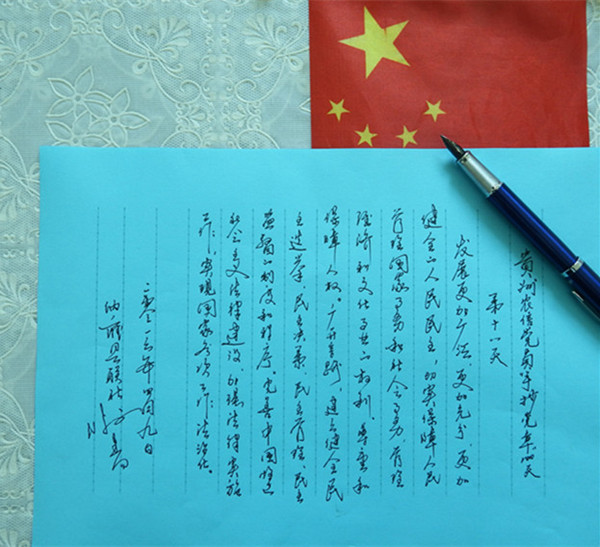 贵州农信党员手抄党章100天
第十八天
发展更加广泛、更加充分、更加
健全的人民民主,切实保障人民
管理国家事务和社会事务、管理
经济和文化事业的权利。尊重和
保障人权。广开言路,建立健全民
主选举、民主决策、民主管理、民主
监督的制度和程序。完善中国特色
社会主义法律体系,加强法律实施
工作,实现国家各项工作法治化。
二零一六年四月九日
纳雍县联社